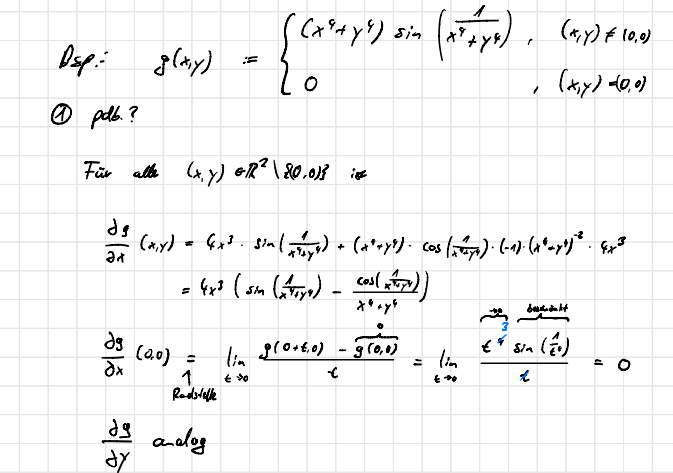 Bsp.: g(x,y) := { (x⁴+y⁴) sin (1/(x⁴+y⁴)) , (x,y) ≠ (0,0)
0 , (x,y) = (0,0)
① pdb.?
Für alle (x,y) ∈ ℝ² \ {(0,0)} ist
∂g/∂x (x,y) = 4x³ · sin(1/(x⁴+y⁴)) + (x⁴+y⁴) · cos(1/(x⁴+y⁴)) · (-1) · (x⁴+y⁴)⁻² · 4x³
= 4x³ ( sin (1/(x⁴+y⁴)) − cos(1/(x⁴+y⁴))/(x⁴+y⁴) )
→0 beschränkt
∂g/∂x (0,0) = lim t→0 (g(0+t,0) − g(0,0))/t = lim t→0 (t⁴ sin (1/t⁴))/t = 0
0 3
↑
∂g/∂y analog